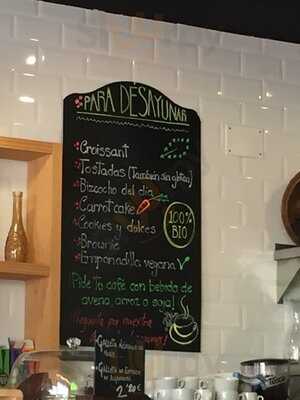 PARA DESAYUNAR
Croissant
Tostadas (También sin gluten)
Bizcocho del día
Carrot cake
Cookies y dulces
Brownie
Empanadilla vegana
100%
BIO
Pide tu café con bebida de
avena, arroz o soja!
Pregunta por nuestra
2